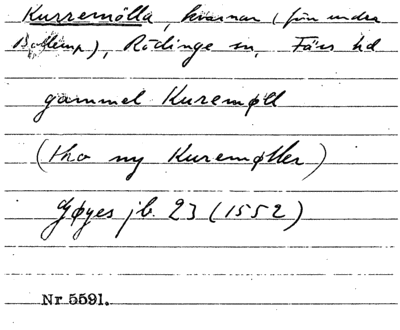 Kurremölla, kvarnar (från andra
Bollerup), Rödinge sn, Färs hd
gammel Kuremøll
(tho ny Kuremøller)
Gøyes jb. 23 (1552)
Nr 5591.